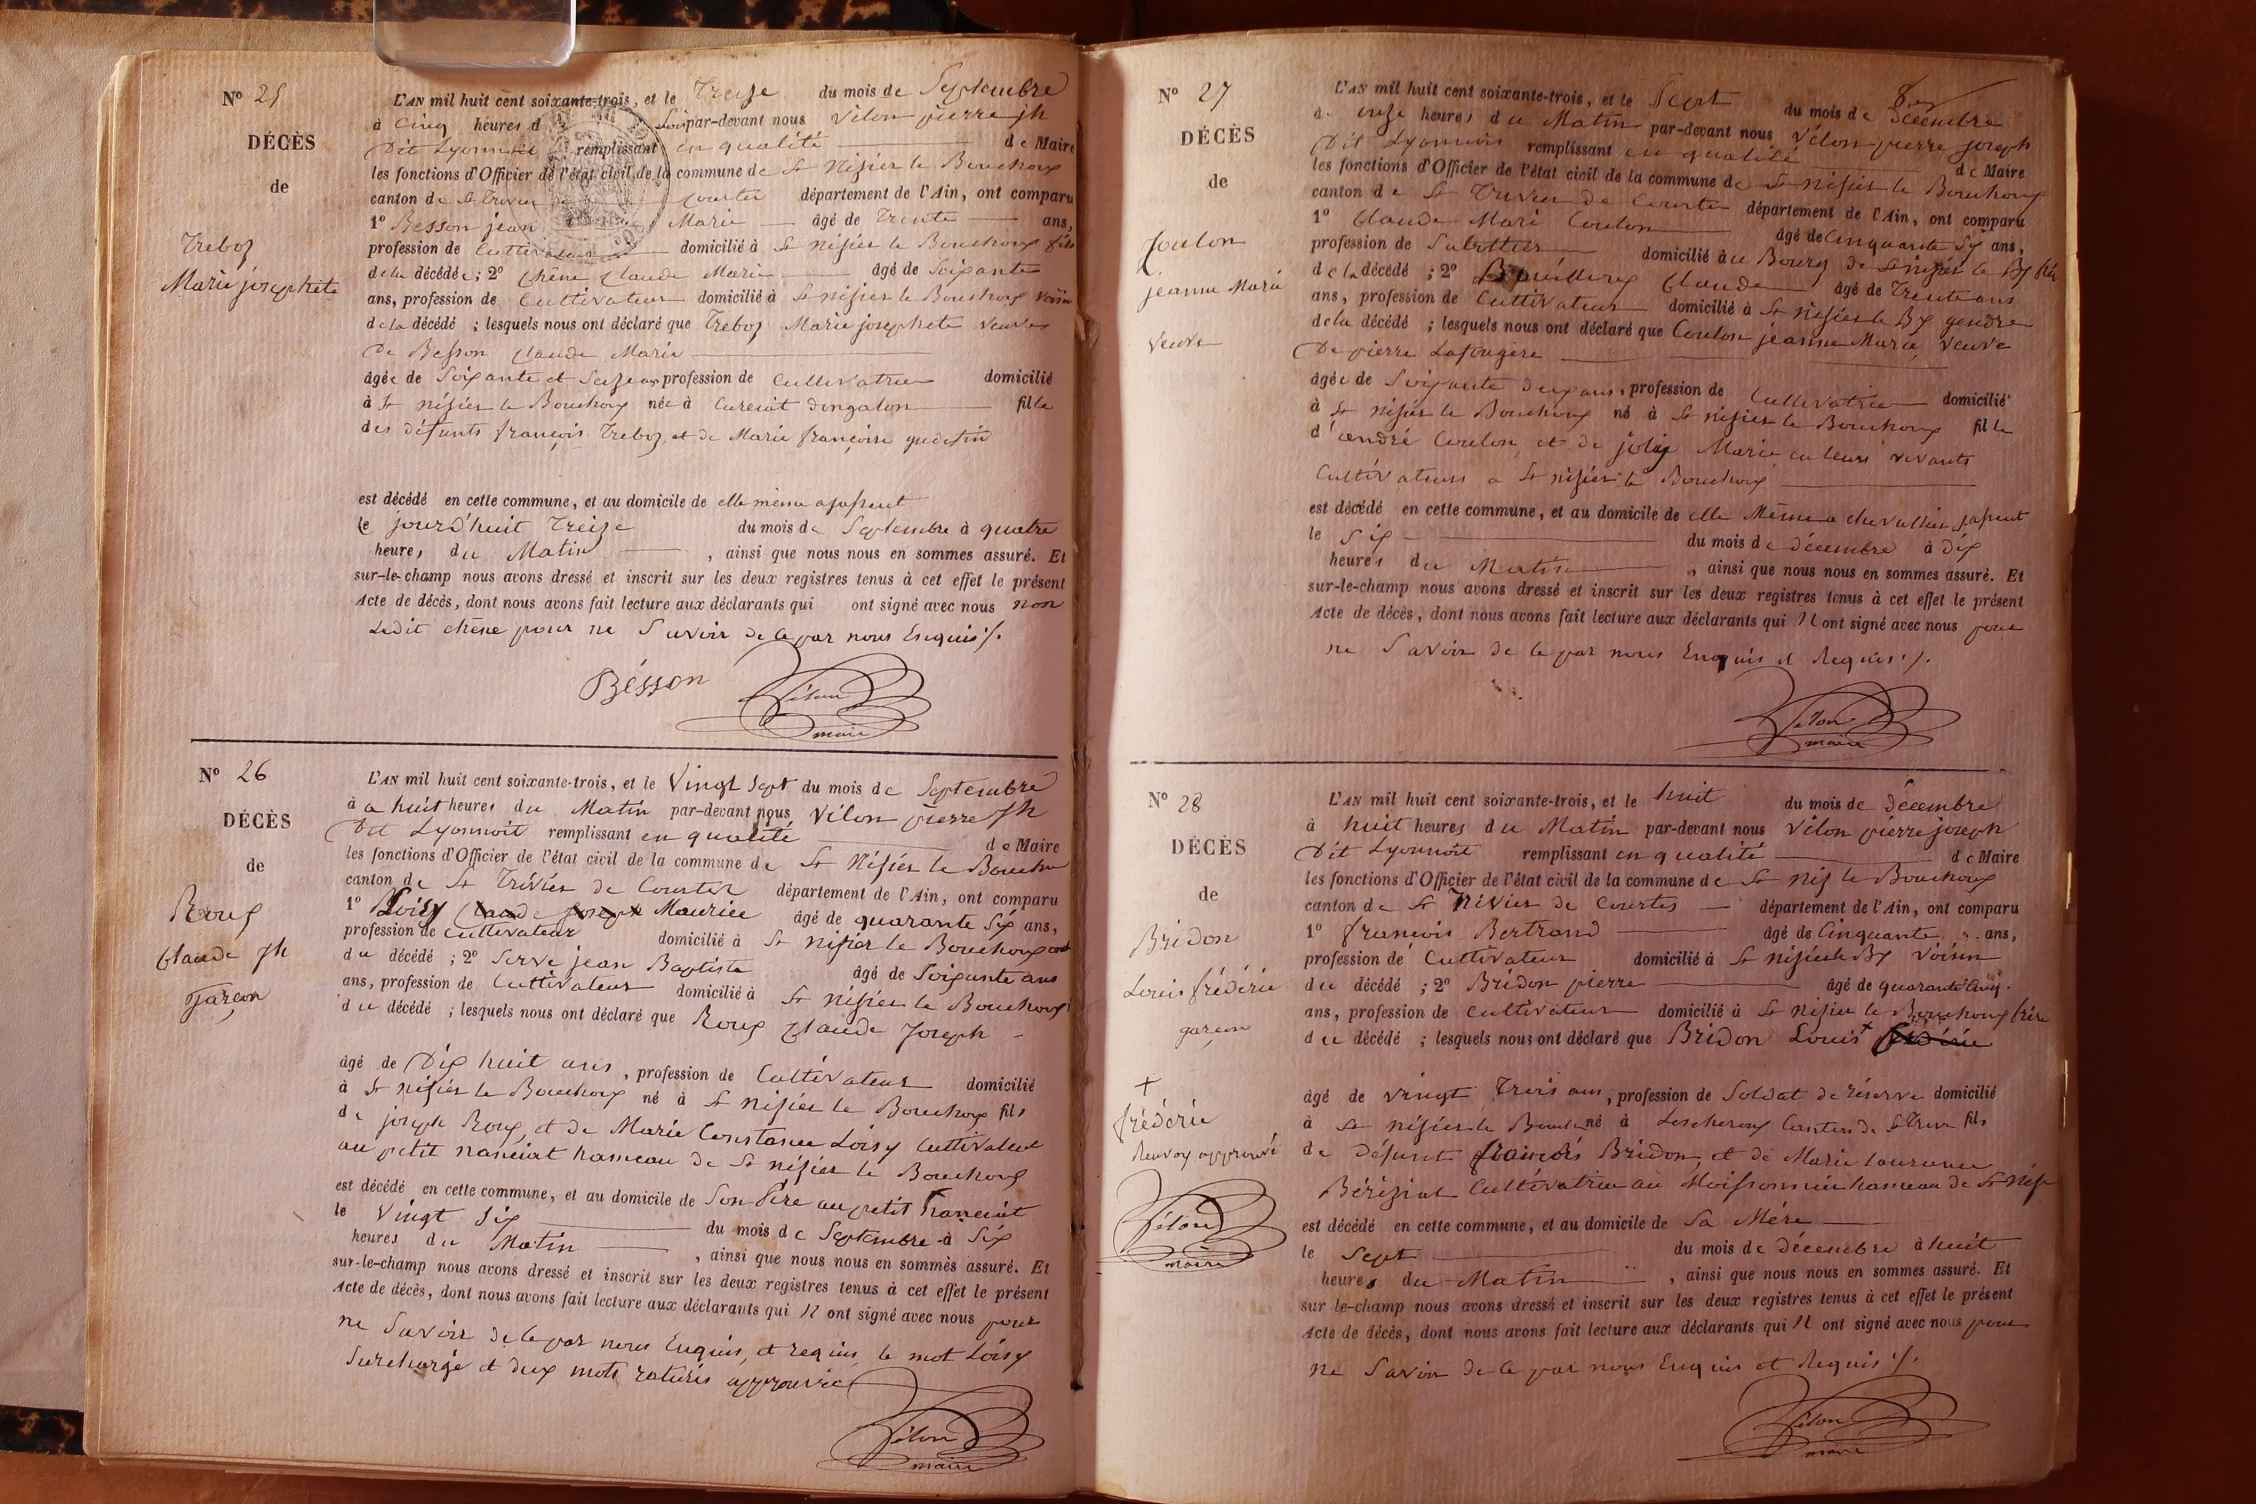 Nº 25
DÉCÈS
de
Treboz
Marie josephete
L'AN mil huit cent soixante-trois, et le Treize du mois de Septembre
à Cinq heures d Soir par-devant nous Vélon pierre jh
Dit Lyonnois remplissant en qualité de Maire
les fonctions d'Officier de l'état civil de la commune de St Nizier le Bouchoux
canton de St Trivier Courtes département de l'Ain, ont comparu
1º Besson jean Marie âgé de Trente ans,
profession de Cultivateur domicilié à St nizier le Bouchoux fils
de la décédée ; 2º Chêne Claude Marie âgé de Soixante
ans, profession de Cultivateur domicilié à St nizier le Bouchoux voisin
de la décédé ; lesquels nous ont déclaré que Treboz Marie josephete veuve
De Besson Claude Marie
âgée de Soixante et Seize ans profession de Cultivatrice domicilié
à St nizier le Bouchoux née à Curciat dongalon fille
des défunts françois Treboz et de Marie françoise
est décédé en cette commune, et au domicile de elle même
le jourd'huit Treize du mois de Septembre à quatre
heures du Matin , ainsi que nous nous en sommes assuré. Et
sur-le-champ nous avons dressé et inscrit sur les deux registres tenus à cet effet le présent
Acte de décès, dont nous avons fait lecture aux déclarants qui ont signé avec nous non
Ledit chêne pour ne Savoir de ce par nous Enquis ./.
Bésson Vélon
maire
Nº 26
DÉCÈS
de
Roux
Claude Jh
Garçon
L'AN mil huit cent soixante-trois, et le Vingt Sept du mois de Septembre
à a huit heures du Matin par-devant nous Vélon pierre Jh
Dit Lyonnoit remplissant en qualité de Maire
les fonctions d'Officier de l'état civil de la commune de St Nizier le Bouchu
canton de St Trivier de Courtes département de l'Ain, ont comparu
1º Loisy Claude Joseph Maurice âgé de quarante Six ans,
profession de Cultivateur domicilié à St nizier le Bouchoux
du décédé ; 2º Serve jean Baptiste âgé de Soixante ans
ans, profession de Cultivateur domicilié à St nizier le Bouchoux
du décédé ; lesquels nous ont déclaré que Roux Claude Joseph
âgé de Dix huit ans , profession de Cultivateur domicilié
à St nizier le Bouchoux né à St nizier le Bouchoux fils
de joseph Roux et de Marie Constance Loisy Cultivateur
au petit nanciat hameau de St nizier le Bouchoux
est décédé en cette commune, et au domicile de Son Père au petit Nanciat
le Vingt Six du mois de Septembre à Six
heures du Matin , ainsi que nous nous en sommes assuré. Et
sur-le-champ nous avons dressé et inscrit sur les deux registres tenus à cet effet le présent
Acte de décès, dont nous avons fait lecture aux déclarants qui n ont signé avec nous pour
ne Savoir de ce par nous Enquis, et requis le mot Loisy
Surchargé et deux mots raturés approuvé
Vélon
maire
Nº 27
DÉCÈS
de
Coulon
jeanne Marie
Veuve
L'AN mil huit cent soixante-trois, et le Sept du mois de Décembre
à onze heures du Matin par-devant nous Vélon pierre joseph
Dit Lyonnois remplissant en qualité de Maire
les fonctions d'Officier de l'état civil de la commune de St nizier le Bouchoux
canton de St Trivier de Courtes département de l'Ain, ont comparu
1º Claude Mari Coulon âgé de Cinquante Six ans,
profession de Sabottier domicilié à u Bourg de St nizier le Bx
de la décédé ; 2º Claude âgé de Trente ans
ans, profession de Cultivateur domicilié à St nizier le Bx gendre
de la décédé ; lesquels nous ont déclaré que Coulon jeanne Marie veuve
De pierre Lafougère
âgée de Soixante deux ans, profession de Cultivatrice domicilié
à St nizier le Bouchoux né à St nizier le Bouchoux fille
d'andré Coulon et de joly Marie en leurs vivants
Cultivateurs a St nizier le Bouchoux
est décédé en cette commune, et au domicile de elle Même a
le Six du mois de décembre à dix
heures du Matin , ainsi que nous nous en sommes assuré. Et
sur-le-champ nous avons dressé et inscrit sur les deux registres tenus à cet effet le présent
Acte de décès, dont nous avons fait lecture aux déclarants qui n ont signé avec nous pour
ne Savoir de ce par nous Enquis et Requis ./.
Vélon
maire
Nº 28
DÉCÈS
de
Bridon
Louis frédéric
garçon
+
frédéric
Renvoy approuvé
Vélon
maire
L'AN mil huit cent soixante-trois, et le huit du mois de Décembre
à huit heures du Matin par-devant nous Vélon pierre joseph
Dit Lyonnoit remplissant en qualité de Maire
les fonctions d'Officier de l'état civil de la commune de St niz le Bouchoux
canton de St Trivier de Courtes département de l'Ain, ont comparu
1º françois Bertrand âgé de Cinquante ans,
profession de Cultivateur domicilié à St nizier le Bx Voisin
du décédé ; 2º Bridon pierre âgé de quarante Cinq
ans, profession de Cultivateur domicilié à St nizier le Bouchoux frère
du décédé ; lesquels nous ont déclaré que Bridon Louis + frédéric
âgé de vingt Trois ans, profession de Soldat de réserve domicilié
à St nizier le Bouch né à Lescheroux Canton de St Triv fils
de défunt françois Bridon et de Marie laurence
Béréziat Cultivatrice au Moissonnier hameau de St Niz
est décédé en cette commune, et au domicile de Sa Mère
le Sept du mois de décembre à huit
heures du Matin , ainsi que nous nous en sommes assuré. Et
sur le-champ nous avons dressé et inscrit sur les deux registres tenus à cet effet le présent
Acte de décès, dont nous avons fait lecture aux déclarants qui n ont signé avec nous pour
ne Savoir de ce par nous Enquis et Requis ./.
Vélon
maire